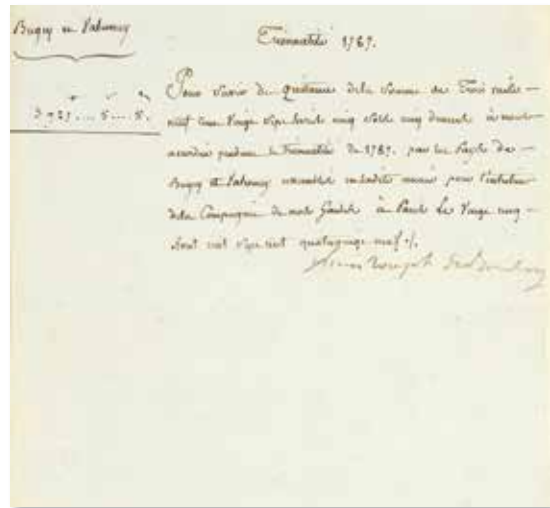 Bugey et Valromey
Trimestre 1789.
3927... 5... 5.
Pour Servir de Quittance de la Somme de Trois mille
neuf Cent Vingt Sept livres cinq Sols cinq deniers à nous
accordée pendant le Trimestre de 1789. par les Pays de
Bugey et Valromey en ladite année pour l'entretien
de la Compagnie de nos Gardes à Paris Le Vingt cinq
Août mil Sept cent quatrevingt neuf ./.
Louis Joseph de Bourbon